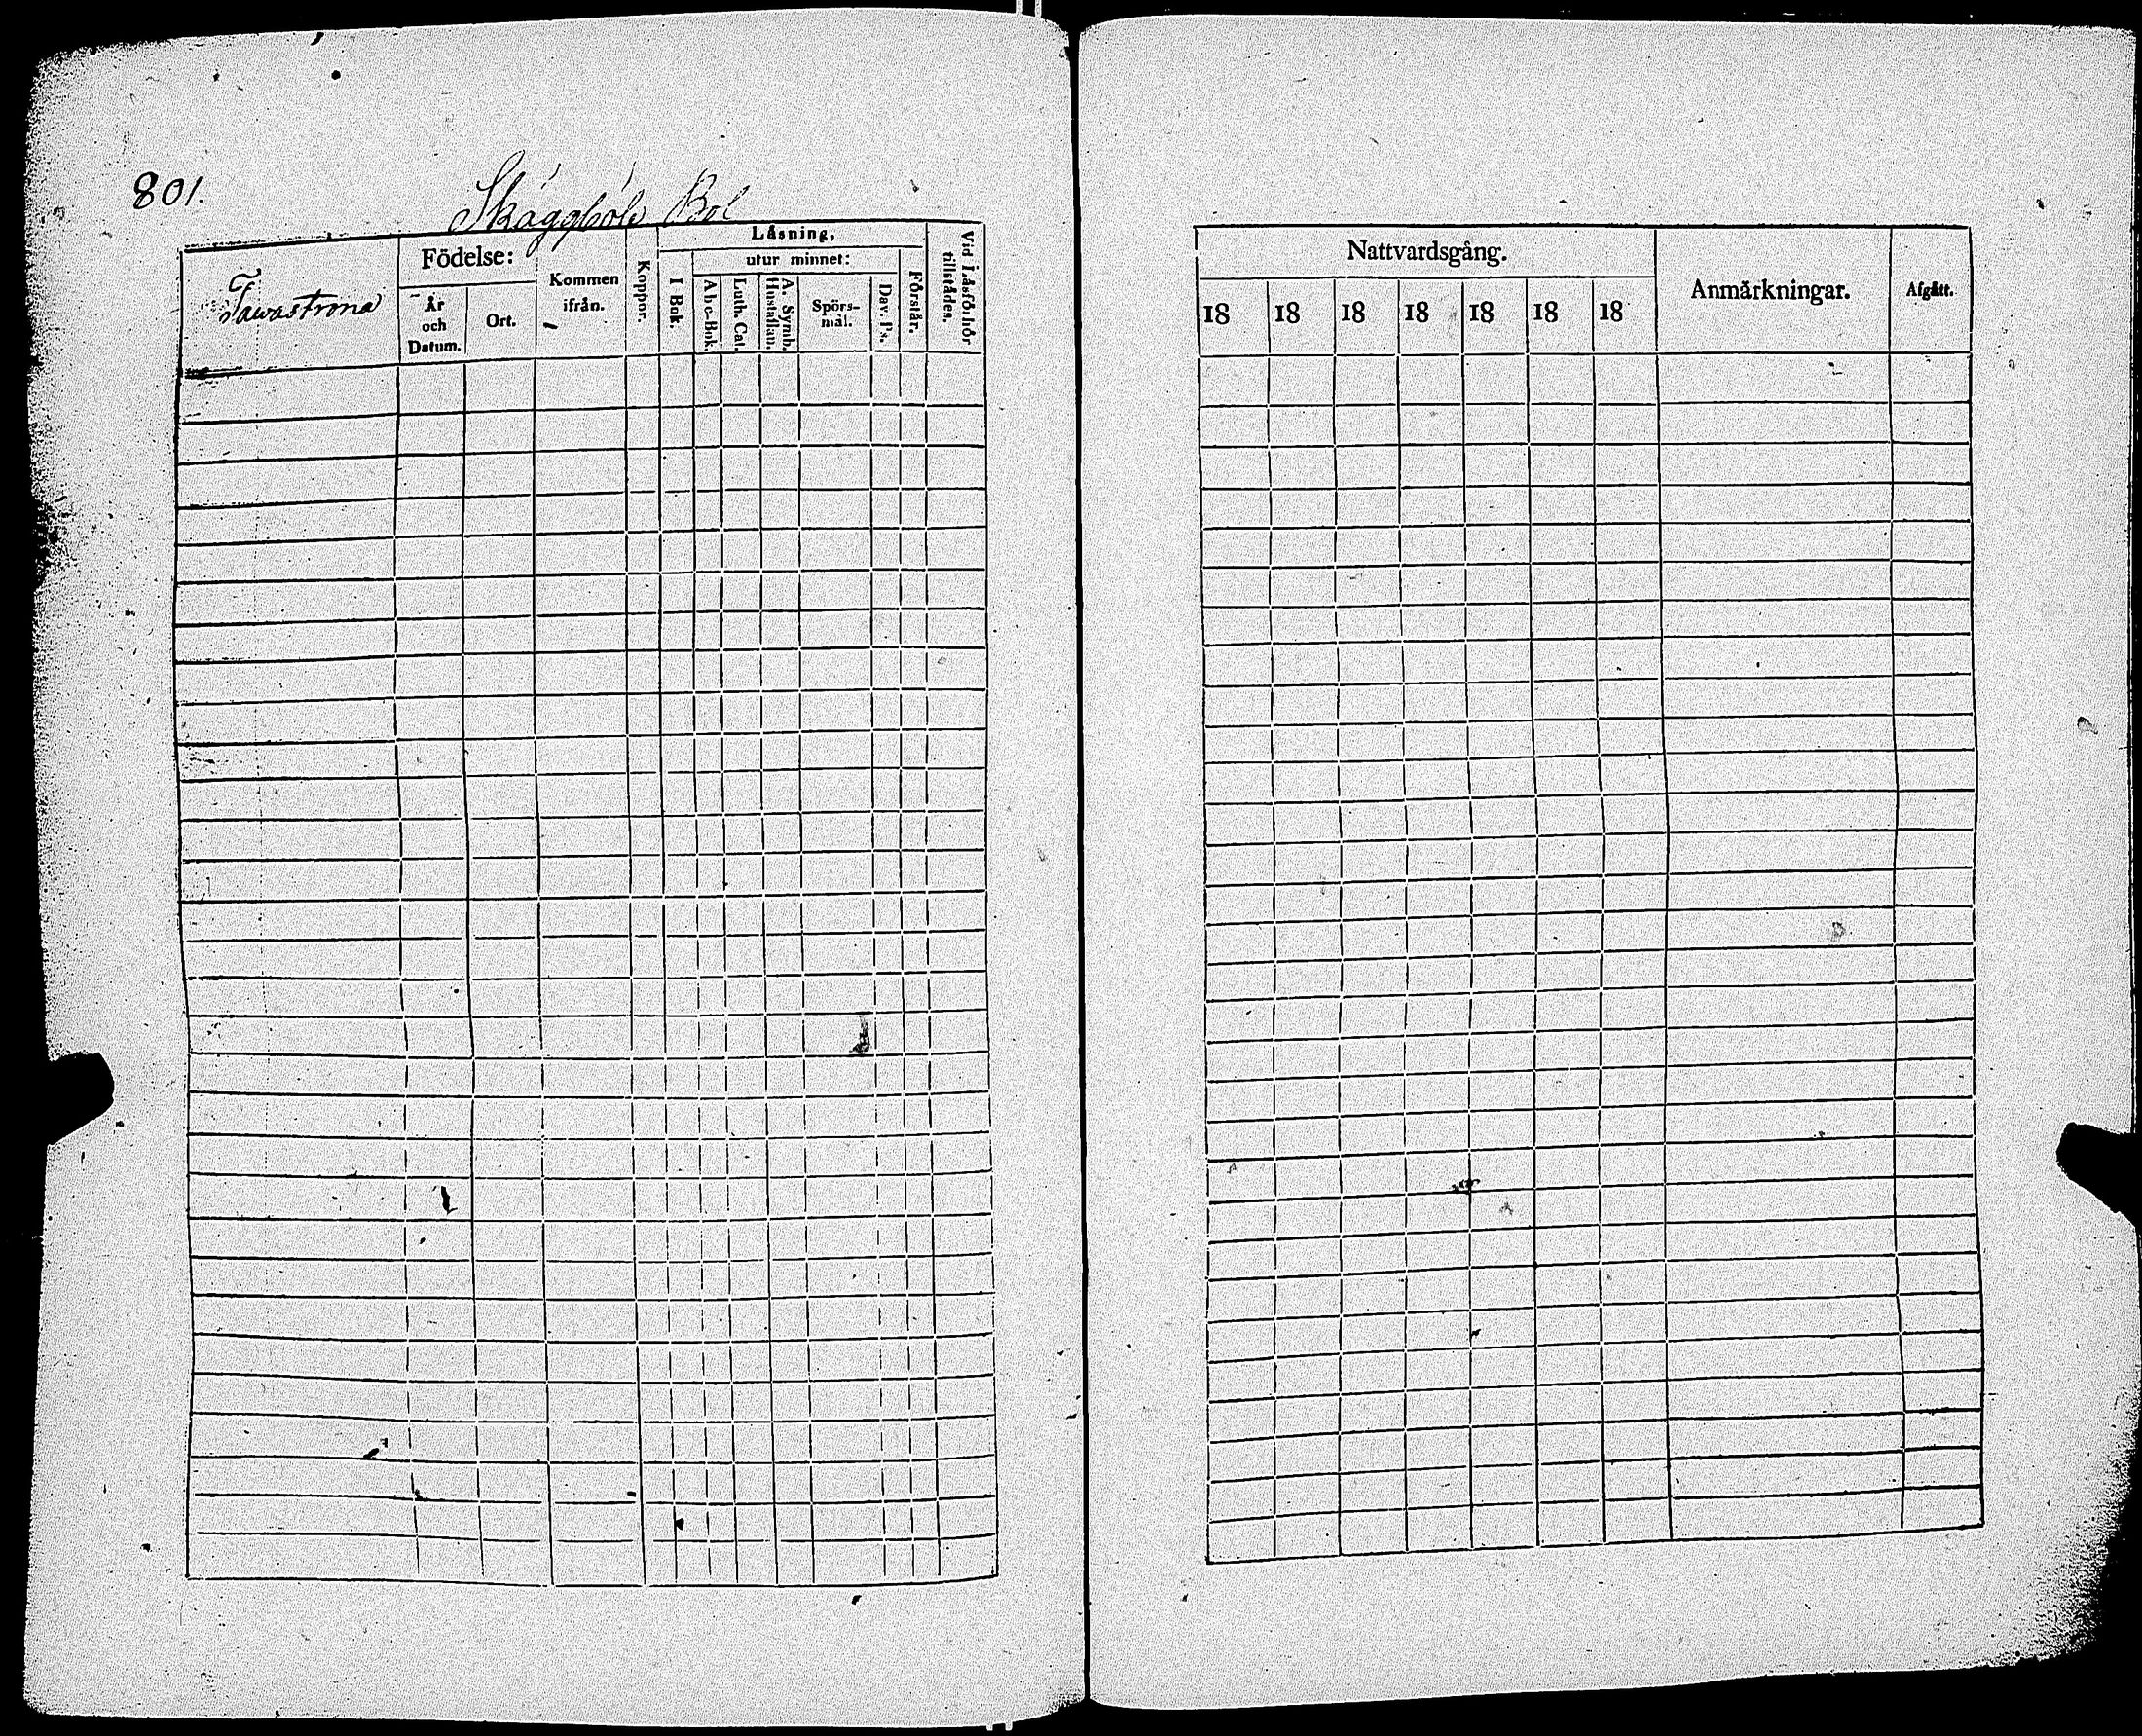 801.
Skäggböle Bol
Tawastrona
Födelse:
År
och
Datum.
Ort.
Kommen
ifrån.
Koppor.
Låsning,
utur minnet:
I Bok.
Abc-Bok.
Luth. Cat.
A. Symb.
Hustaflan.
Spörs-
mål.
Dav. Ps.
Förstår.
Vid Låsförhör
tillstädes.
Nattvardsgång.
18 18 18 18 18 18 18
Anmärkningar.
Afgått.